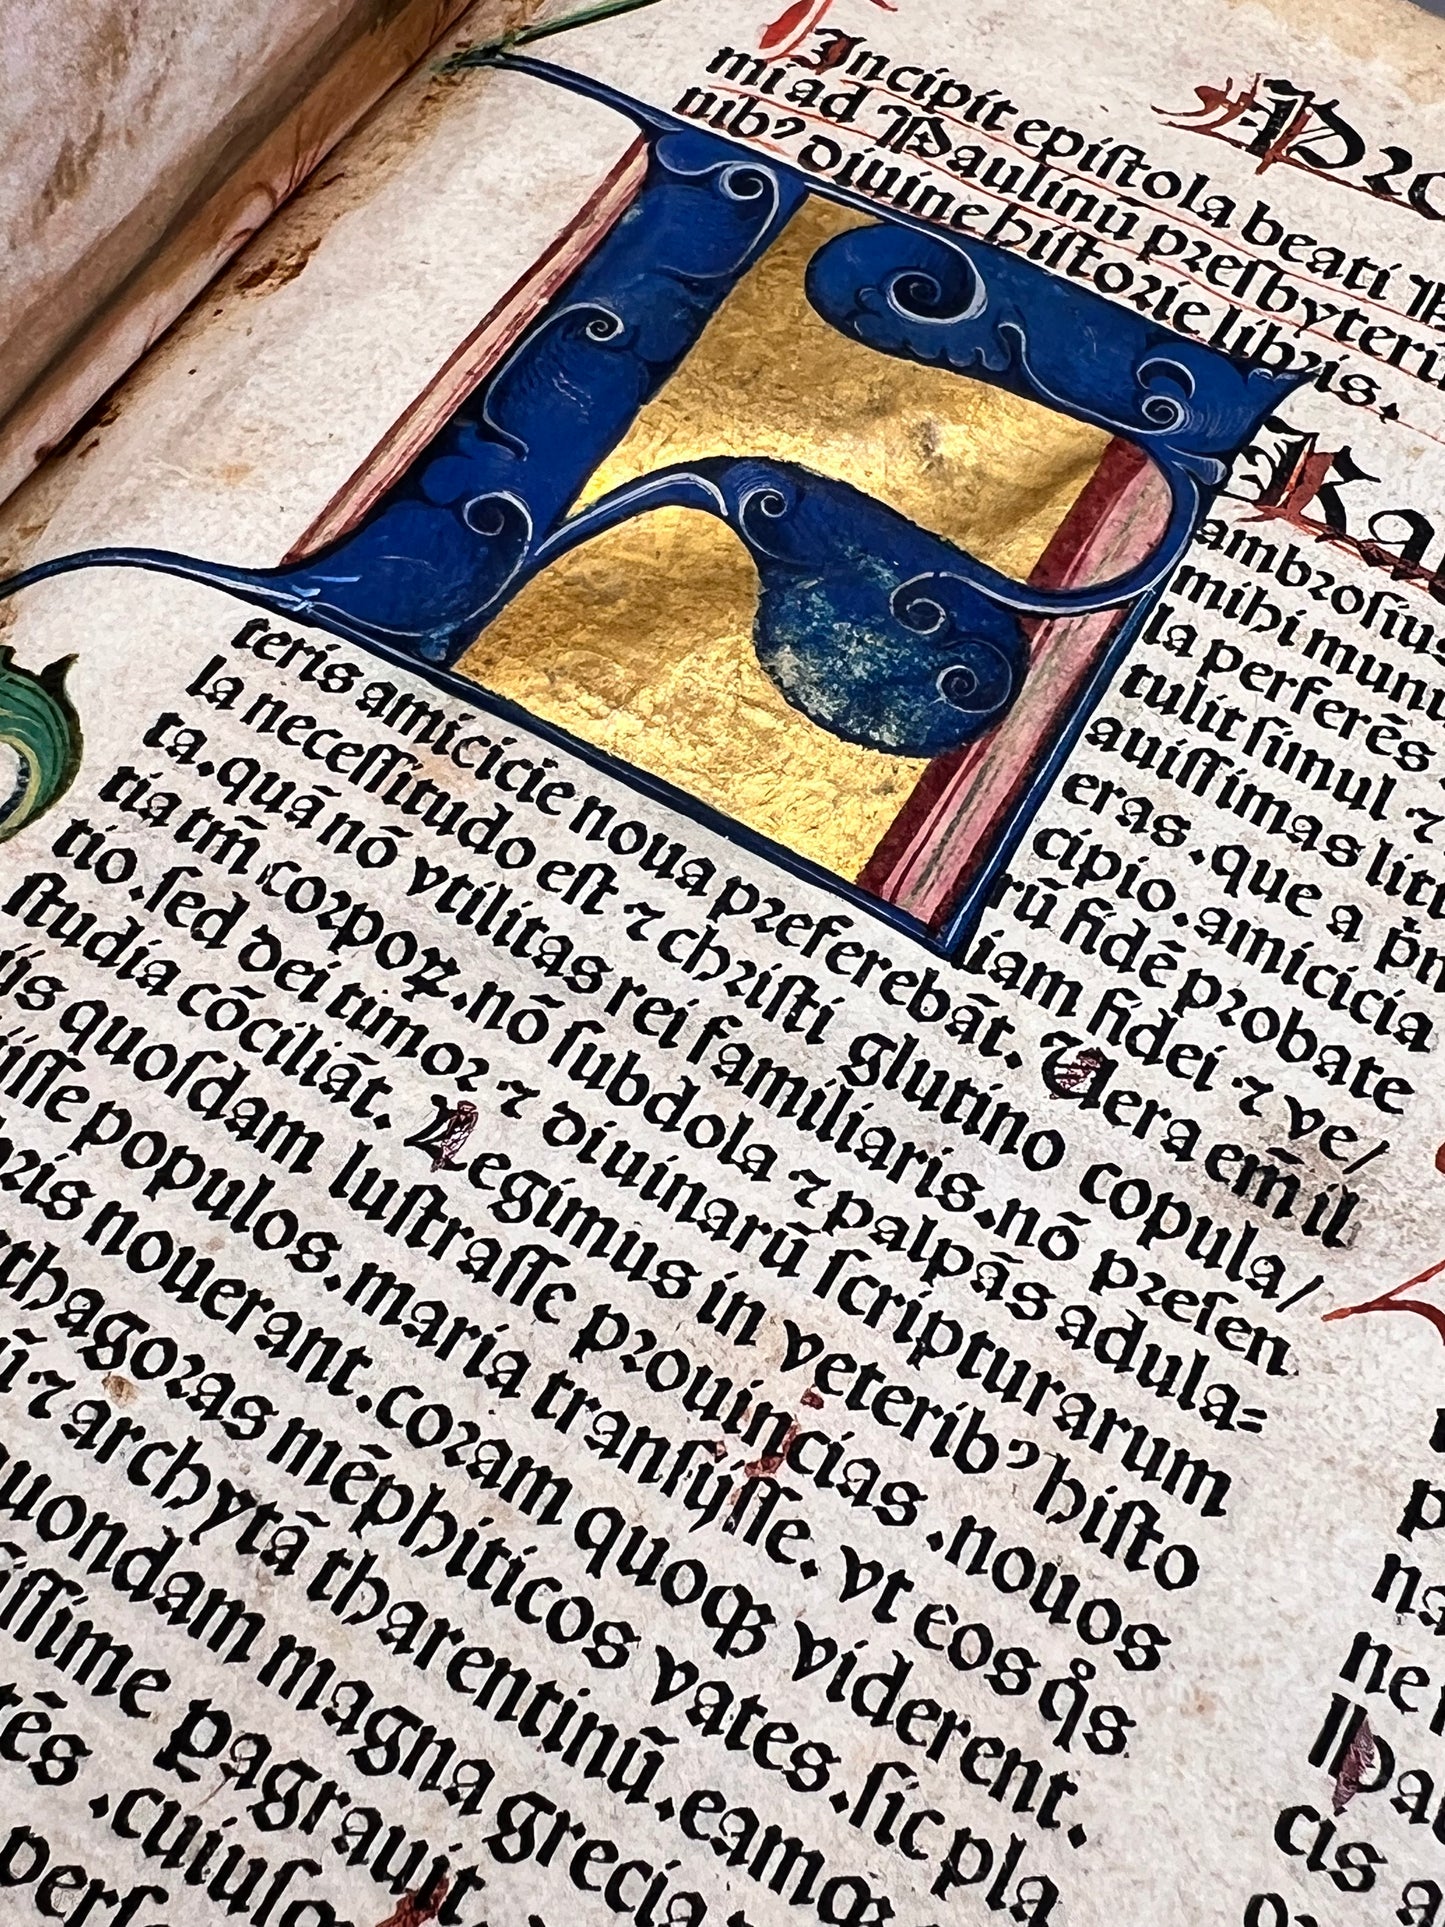 Incipit epistola beati
mi ad Paulinū presbyterū
nibꝰ diuine historie libris.
F Ra
ambrosius
mihi munu
la perferēs
tulit simul ⁊
auissimas litt
eras. que a
cipio. amicicia
rū fidē probate
iam fidei ⁊ ve/
teris amicicie noua preferebāt. Uera em̄ il
la necessitudo est ⁊ christi glutino copula/
ta. quā nō vtilitas rei familiaris. nō presen
tia tm̄ corpoꝝ. nō subdola ⁊ palpās adula=
tio. sed dei timor ⁊ diuinarū scripturarum
studia cōciliāt. Legimus in veteribꝰ histo
ijs quosdam lustrasse prouincias. nouos
ijsse populos. maria transijsse. vt eos q̊s
ris nouerant. coram quoqꝫ viderent.
thagoras mēphiticos vates. sic pla
⁊ archytā tharentinū. eamqꝫ
uondam magna grecia
issime pagrauit
rēs. cuius